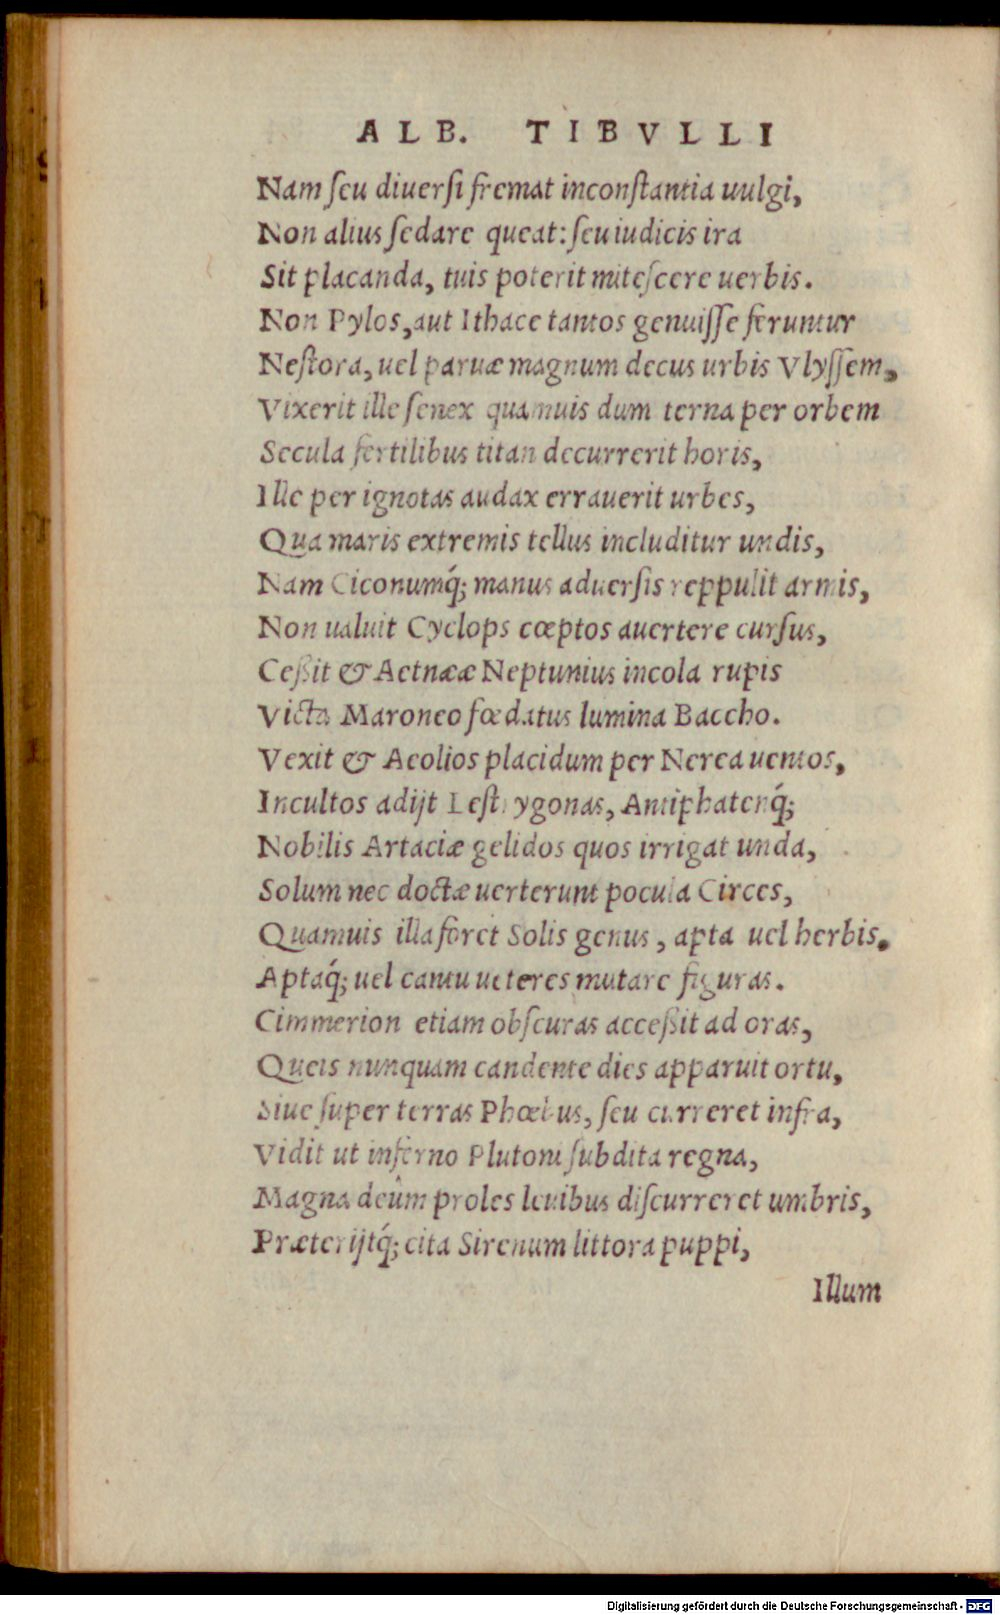 ALB. TIBVLLI
Nam ſeu diuerſi fremat inconſtantia uulgi,
Non alius ſedare queat: ſeu iudicis ira
Sit placanda, tuis poterit miteſcere uerbis.
Non Pylos, aut Ithace tantos genuiſſe feruntur
Neſtora, uel paruæ magnum decus urbis Vlyſſem,
Vixerit ille ſenex quamuis dum terna per orbem
Secula fertilibus titan decurrerit horis,
Ille per ignotas audax errauerit urbes,
Qua maris extremis tellus includitur undis,
Nam Ciconumq́; manus aduerſis reppulit armis,
Non ualuit Cyclops cœptos auertere curſus,
Ceßit & Aetnææ Neptunius incola rupis
Victa Maroneo fœdatus lumina Baccho.
Vexit & Aeolios placidum per Nerea uentos,
Incultos adijt Leſtrygonas, Antiphatenq́;
Nobilis Artaciæ gelidos quos irrigat unda,
Solum nec doctæ uerterunt pocula Circes,
Quamuis illa foret Solis genus, apta uel herbis.
Aptaq́; uel cantu ueteres mutare figuras.
Cimmerion etiam obſcuras acceßit ad oras,
Queis nunquam candente dies apparuit ortu,
Siue ſuper terras Phœbus, ſeu curreret infra,
Vidit ut inferno Plutoni ſubdita regna,
Magna deûm proles leuibus diſcurreret umbris,
Præterijtq́; cita Sirenum littora puppi,
Illum
Digitalisierung gefördert durch die Deutsche Forschungsgemeinschaft - DFG